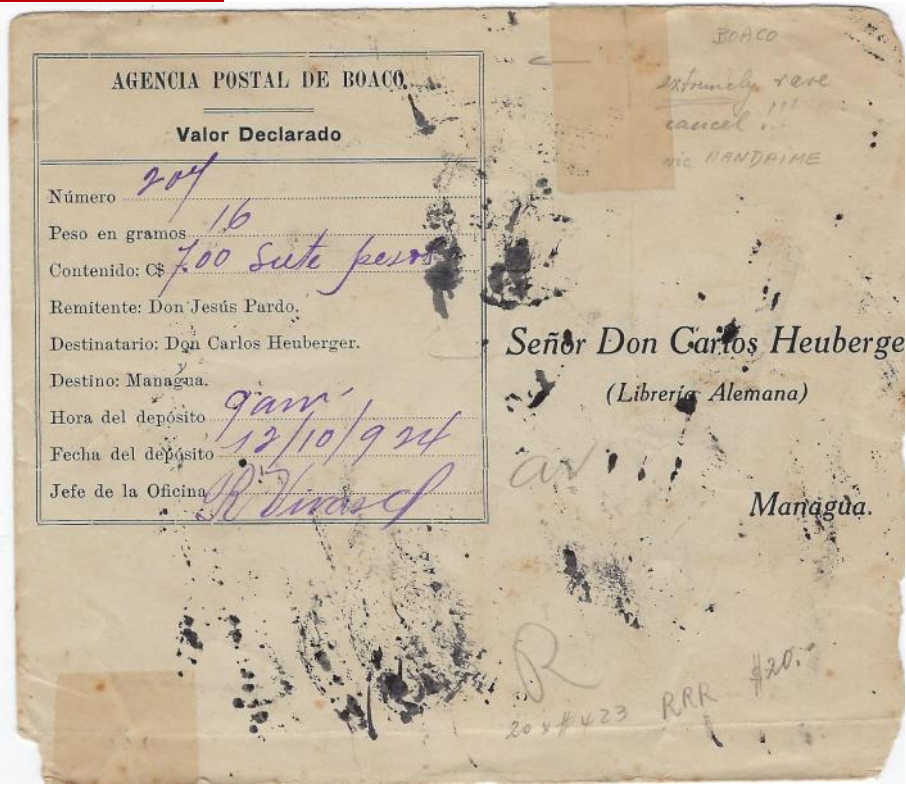 AGENCIA POSTAL DE BOACO.
Valor Declarado
Número 204
Peso en gramos 16
Contenido: C$ 7.00 Siete pesos
Remitente: Don Jesús Pardo.
Destinatario: Don Carlos Heuberger.
Destino: Managua.
Hora del depósito 9 am.
Fecha del depósito 12/10/924
Jefe de la Oficina R Vivas
BOACO
extremely rare
cancel !!!
via NANDAIME
Señor Don Carlos Heuberge
(Librería Alemana)
Managua.
av
R
20 x # 423 RRR $20.-